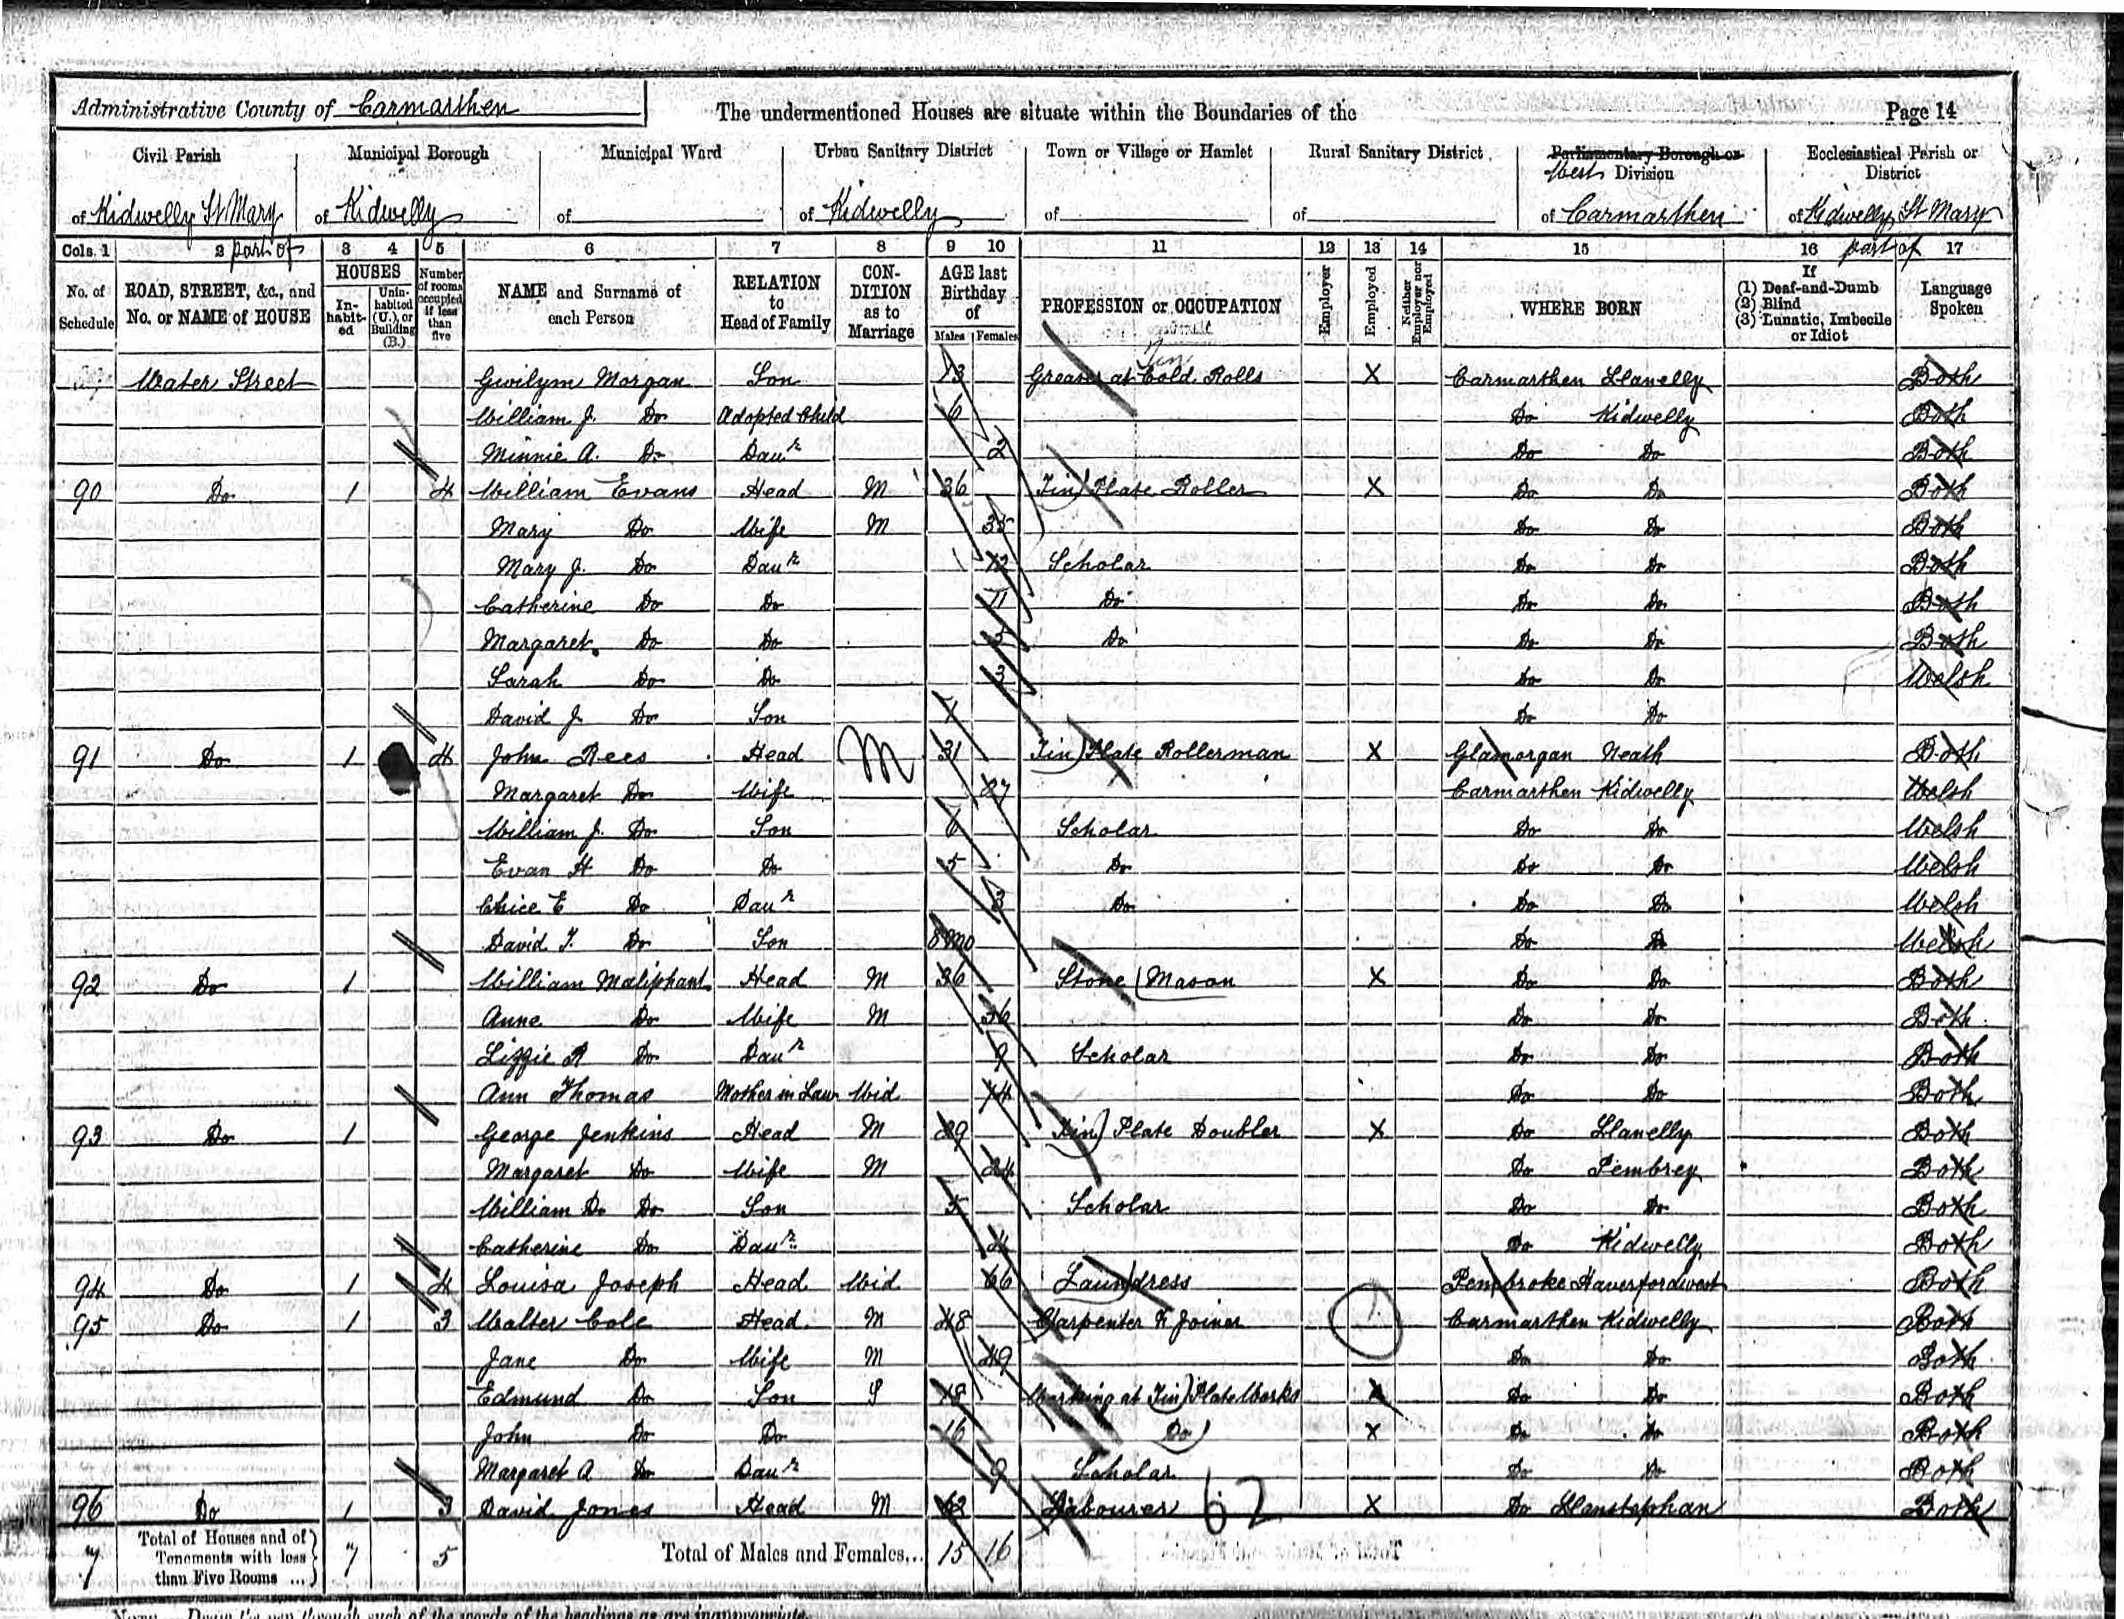 Administrative County of Carmarthen The undermentioned Houses are situate within the Boundaries of the Page 14
Civil Parish Municipal Borough Municipal Ward Urban Sanitary District Town or Village or Hamlet Rural Sanitary District Parliamentary Borough or Ecclesiastical Parish or
West Division District
of Kidwelly St Mary of Kidwelly of of Kidwelly of of of Carmarthen of Kidwelly St Mary
part of part of
Cols. 1 2 3 4 5 6 7 8 9 10 11 12 13 14 15 16 17
No. of Schedule ROAD, STREET, &c., and No. or NAME of HOUSE HOUSES In-habit-ed Unin-habited (U.), or Building (B.) Number of rooms occupied if less than five NAME and Surname of each Person RELATION to Head of Family CON-DITION as to Marriage AGE last Birthday of Males Females PROFESSION or OCCUPATION Employer Employed Neither Employer nor Employed WHERE BORN If (1) Deaf-and-Dumb (2) Blind (3) Lunatic, Imbecile or Idiot Language Spoken
Tin
Water Street Gwilym Morgan Son 13 Greaser at Cold Rolls X Carmarthen Llanelly Both
William J. Do Adopted Child 6 Do Kidwelly Both
Minnie A. Do Daur 2 Do Do Both
90 Do 1 4 William Evans Head M 36 Tin Plate Roller X Do Do Both
Mary Do Wife M 35 Do Do Both
Mary J. Do Daur 12 Scholar Do Do Both
Catherine Do Do 11 Do Do Do Both
Margaret Do Do 5 Do Do Do Both
Sarah Do Do 3 Do Do Welsh
David J. Do Son 1 Do Do
91 Do 1 4 John Rees Head M 31 Tin Plate Rollerman X Glamorgan Neath Both
Margaret Do Wife 27 Carmarthen Kidwelly Welsh
William J. Do Son Scholar Do Do Welsh
Evan H Do Do 5 Do Do Do Welsh
E Do Daur 3 Do Do Do Welsh
David T. Do Son 8 mo Do Do Welsh
92 Do 1 William Maliphant Head M 36 Stone Mason X Do Do Both
Anne Do Wife M 36 Do Do Both
Lizzie R Do Daur 9 Scholar Do Do Both
Ann Thomas Mother in Law Wid Do Do Both
93 Do 1 George Jenkins Head M 29 Tin Plate Doubler X Do Llanelly Both
Margaret Do Wife M 24 Do Pembrey Both
William D. Do Son 5 Scholar Do Do Both
Catherine Do Daur Do Kidwelly Both
94 Do 1 4 Louisa Joseph Head Wid 66 Laundress Pembroke Haverfordwest Both
95 Do 1 3 Walter Cole Head M 48 Carpenter & Joiner Carmarthen Kidwelly Both
Jane Do Wife M 49 Do Do Both
Edmund Do Son S Working at Tin Plate Works X Do Do Both
John Do Do 16 Do X Do Do Both
Margaret A Do Daur 9 Scholar Do Do Both
96 Do 1 3 David Jones Head M 62 Labourer 62 X Do Llanstephan Both
7 Total of Houses and of Tenements with less than Five Rooms ... 7 5 Total of Males and Females... 15 16